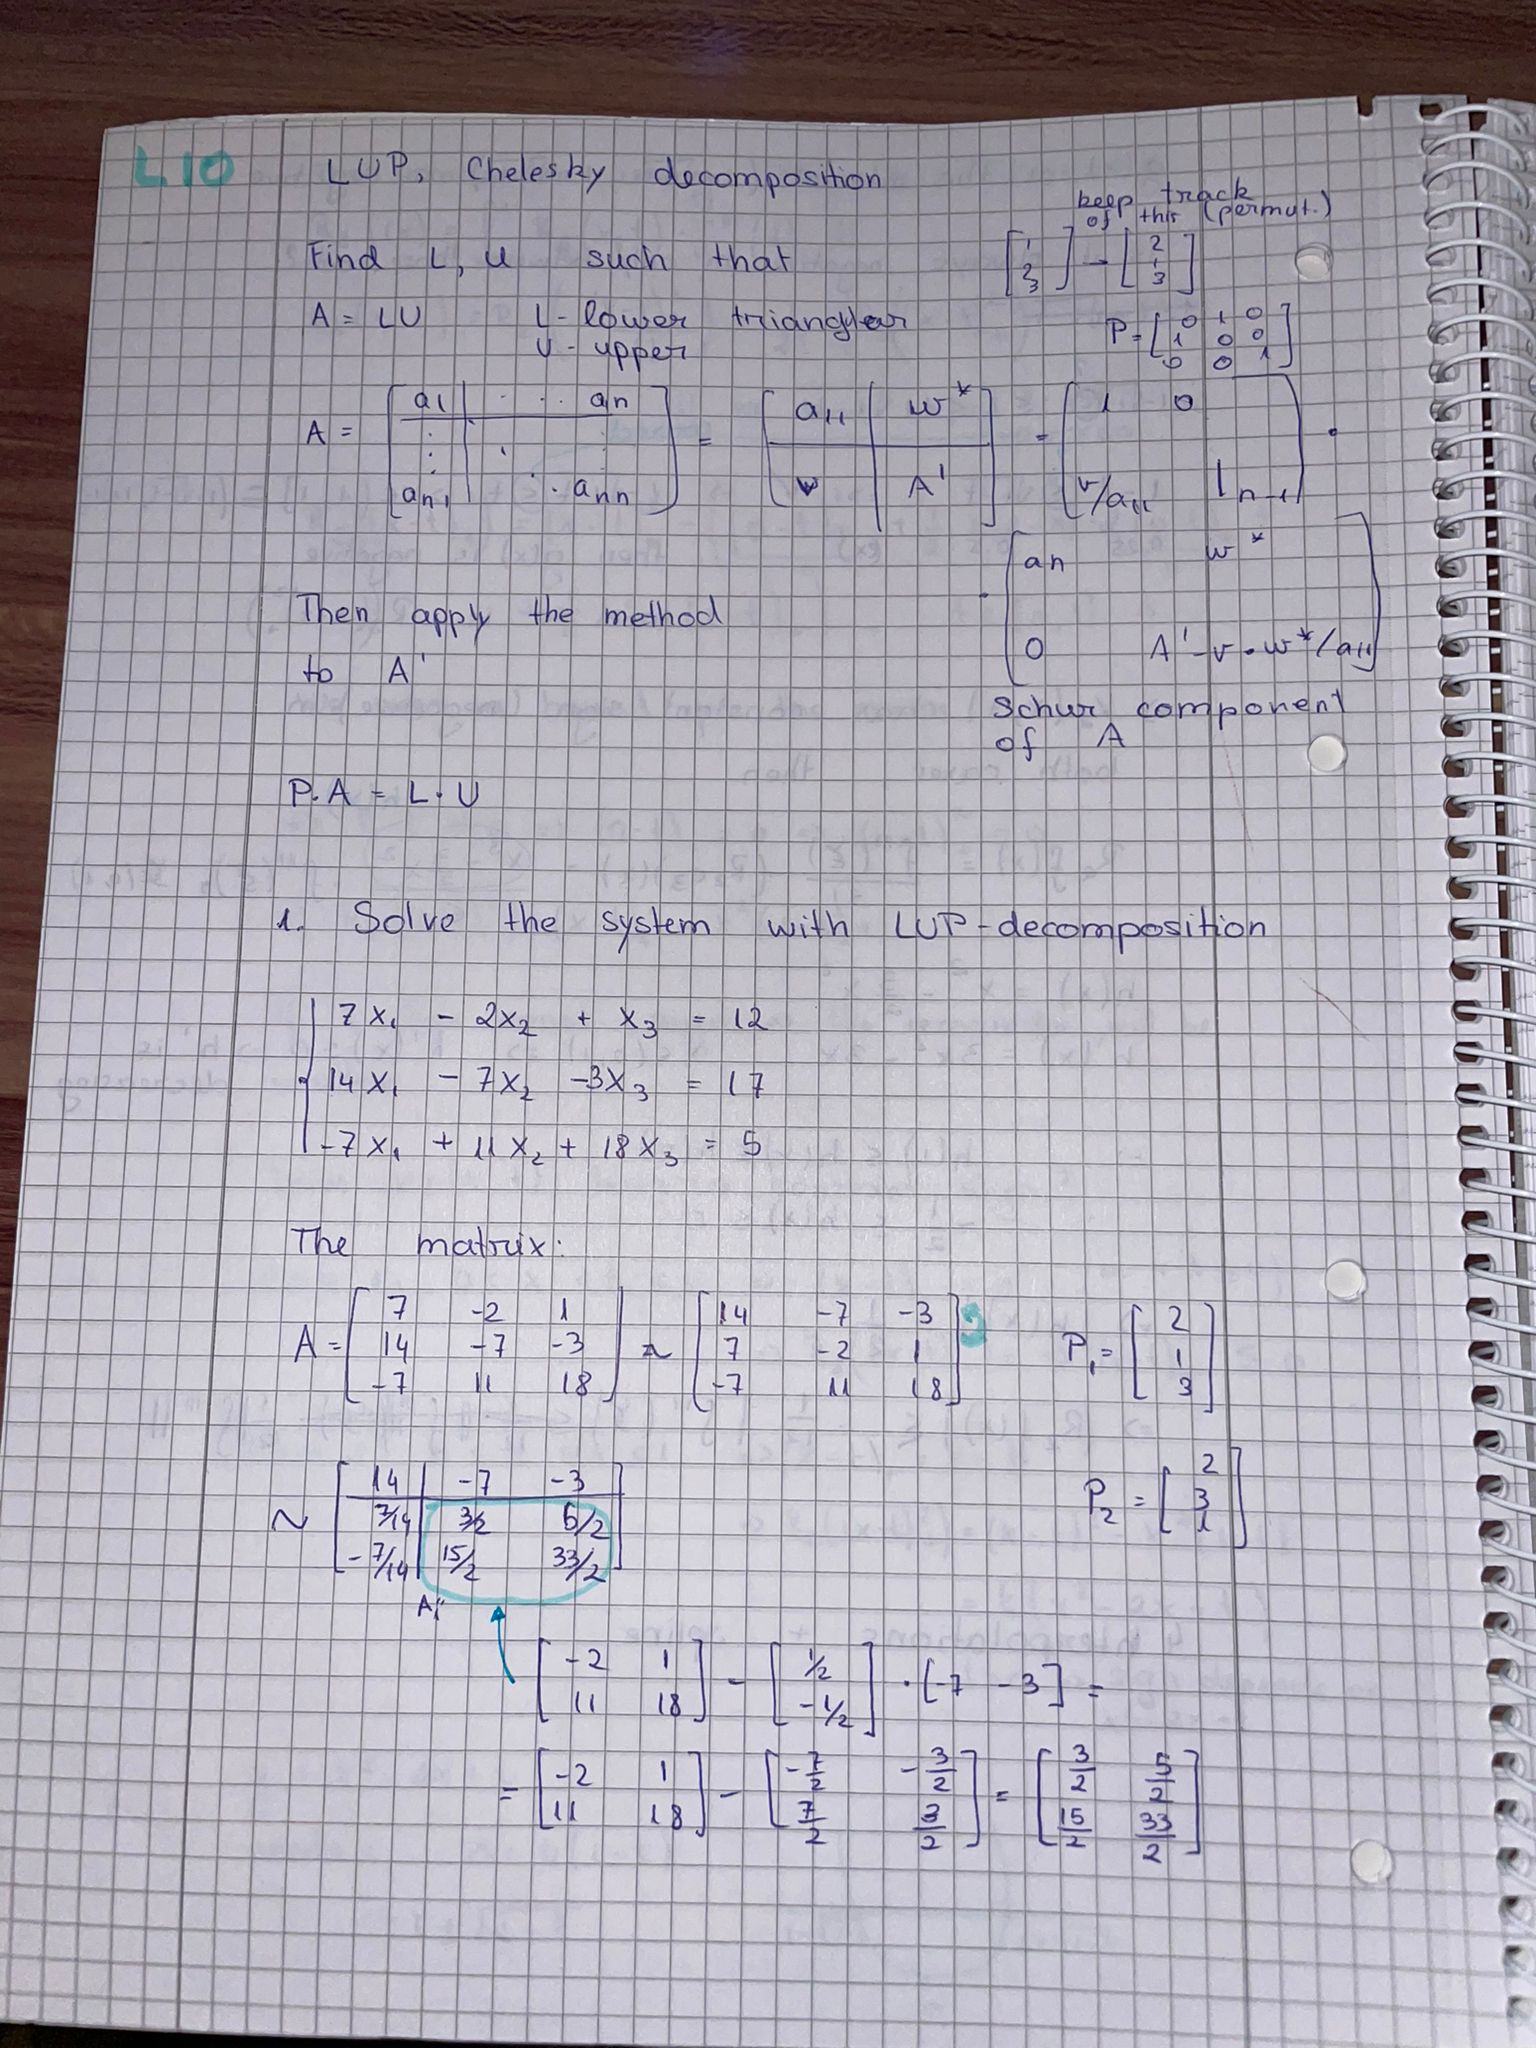 L10 LUP, Chelesky decomposition
keep track
of this (permut.)
Find L, U such that [1 2 3] - [2 1 3]
A = LU L - lower triangular
U - upper
P = [0 1 0
1 0 0
0 0 1]
A = [a11 . . . a1n
: . :
an1 . . ann] = [a11 w*
v A'] = [1 0
v/a11 In-1] •
· [a11 w*
0 A' - v • w*/a11]
Then apply the method
to A'
Schur component
of A
P.A = L.U
1. Solve the system with LUP-decomposition
7x1 - 2x2 + x3 = 12
14x1 - 7x2 - 3x3 = 17
-7x1 + 11x2 + 18x3 = 5
The matrix:
A = [7 -2 1
14 -7 -3
-7 11 18] ~ [14 -7 -3
7 -2 1
-7 11 18] P1 = [2
1
3]
~ [14 -7 -3
7/14 3/2 5/2
-7/14 15/2 33/2] P2 = [2
3
1]
[-2 1
11 18] - [1/2
-1/2] · [-7 -3] =
= [-2 1
11 18] - [-7/2 -3/2
7/2 3/2] = [3/2 5/2
15/2 33/2]